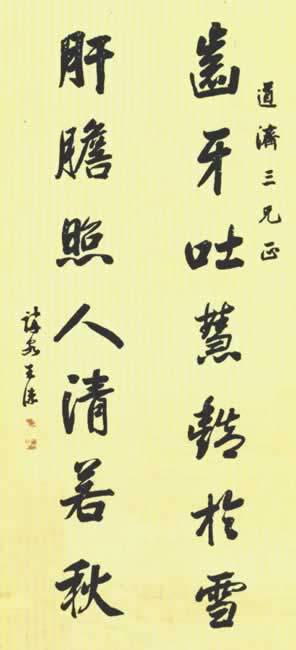 道濟三兄正
齒牙吐慧豔於雪
肝膽照人清若秋
王